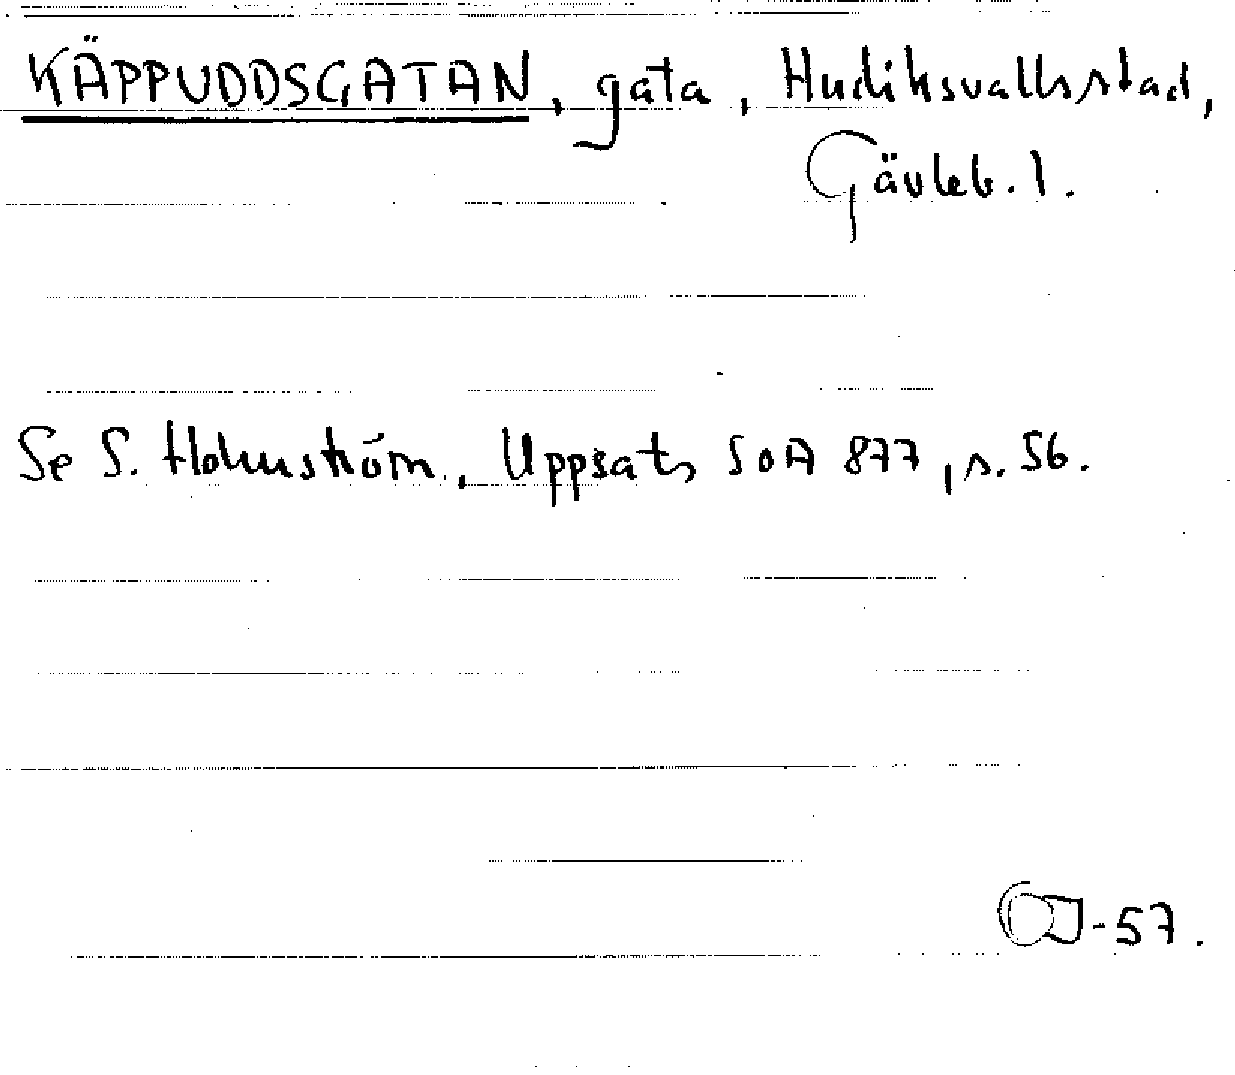 KÄPPUDDSGATAN, gata, Hudiksvalls stad,
Gävleb. l.
Se S. Holmström, Uppsats SOA 877, s. 56.
-57.